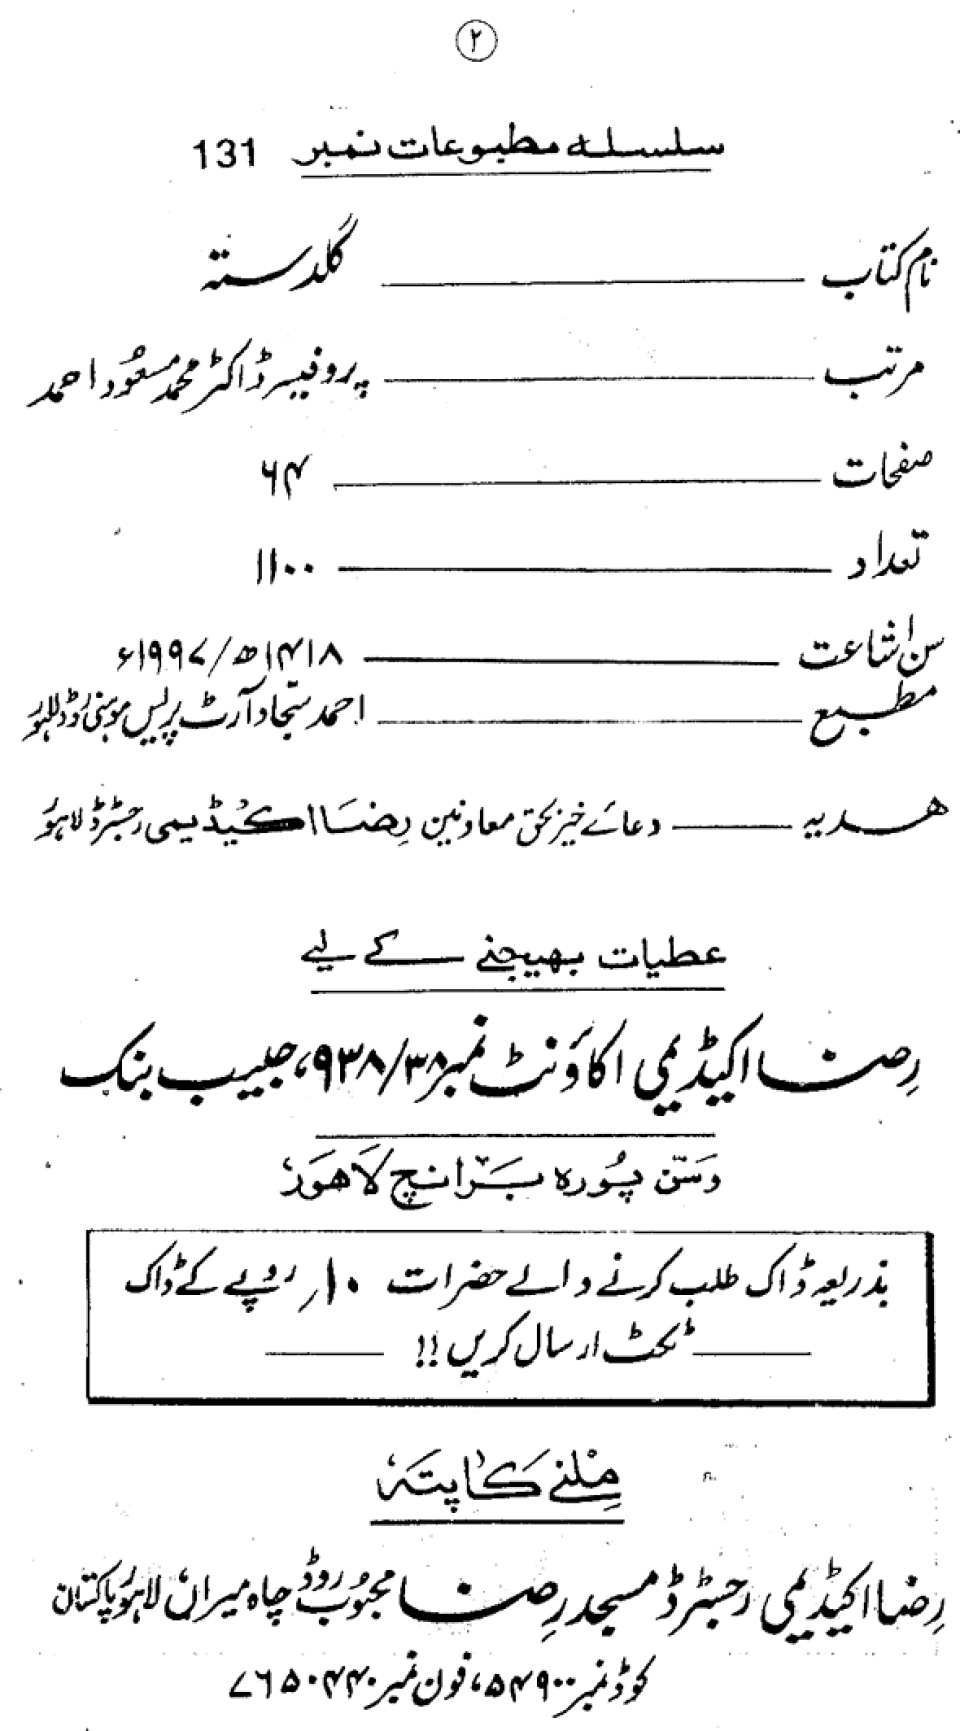 ۲
سلسلہ مطبوعات نمبر 131
نام کتاب ــــــ گلدستہ
مرتب ــــــ پروفیسر ڈاکٹر محمد مسعود احمد
صفحات ــــــ ۶۴
تعداد ــــــ ۱۱۰۰
سن اشاعت ــــــ ۱۴۱۸ھ/۱۹۹۷ء
مطبع ــــــ احمد سجاد آرٹ پریس موہنی روڈ لاہور
ھدیہ ــــــ دعائے خیر بحق معاونین رضا اکیڈیمی رجسٹرڈ لاہور
عطیات بھیجنے کے لیے
رضا اکیڈیمی اکاؤنٹ نمبر ۹۳۸/۳۸، حبیب بنک
وسن پورہ برانچ لاھور
بذریعہ ڈاک طلب کرنے والے حضرات ۱۰/ روپے کے ڈاک
ــــــ ٹکٹ ارسال کریں !! ــــــ
ملنے کا پتہ
رضا اکیڈیمی رجسٹرڈ مسجد رضا محبوب روڈ چاہ میراں لاہور پاکستان
کوڈ نمبر ۵۴۹۰۰، فون نمبر ۷۶۵۰۴۴۰